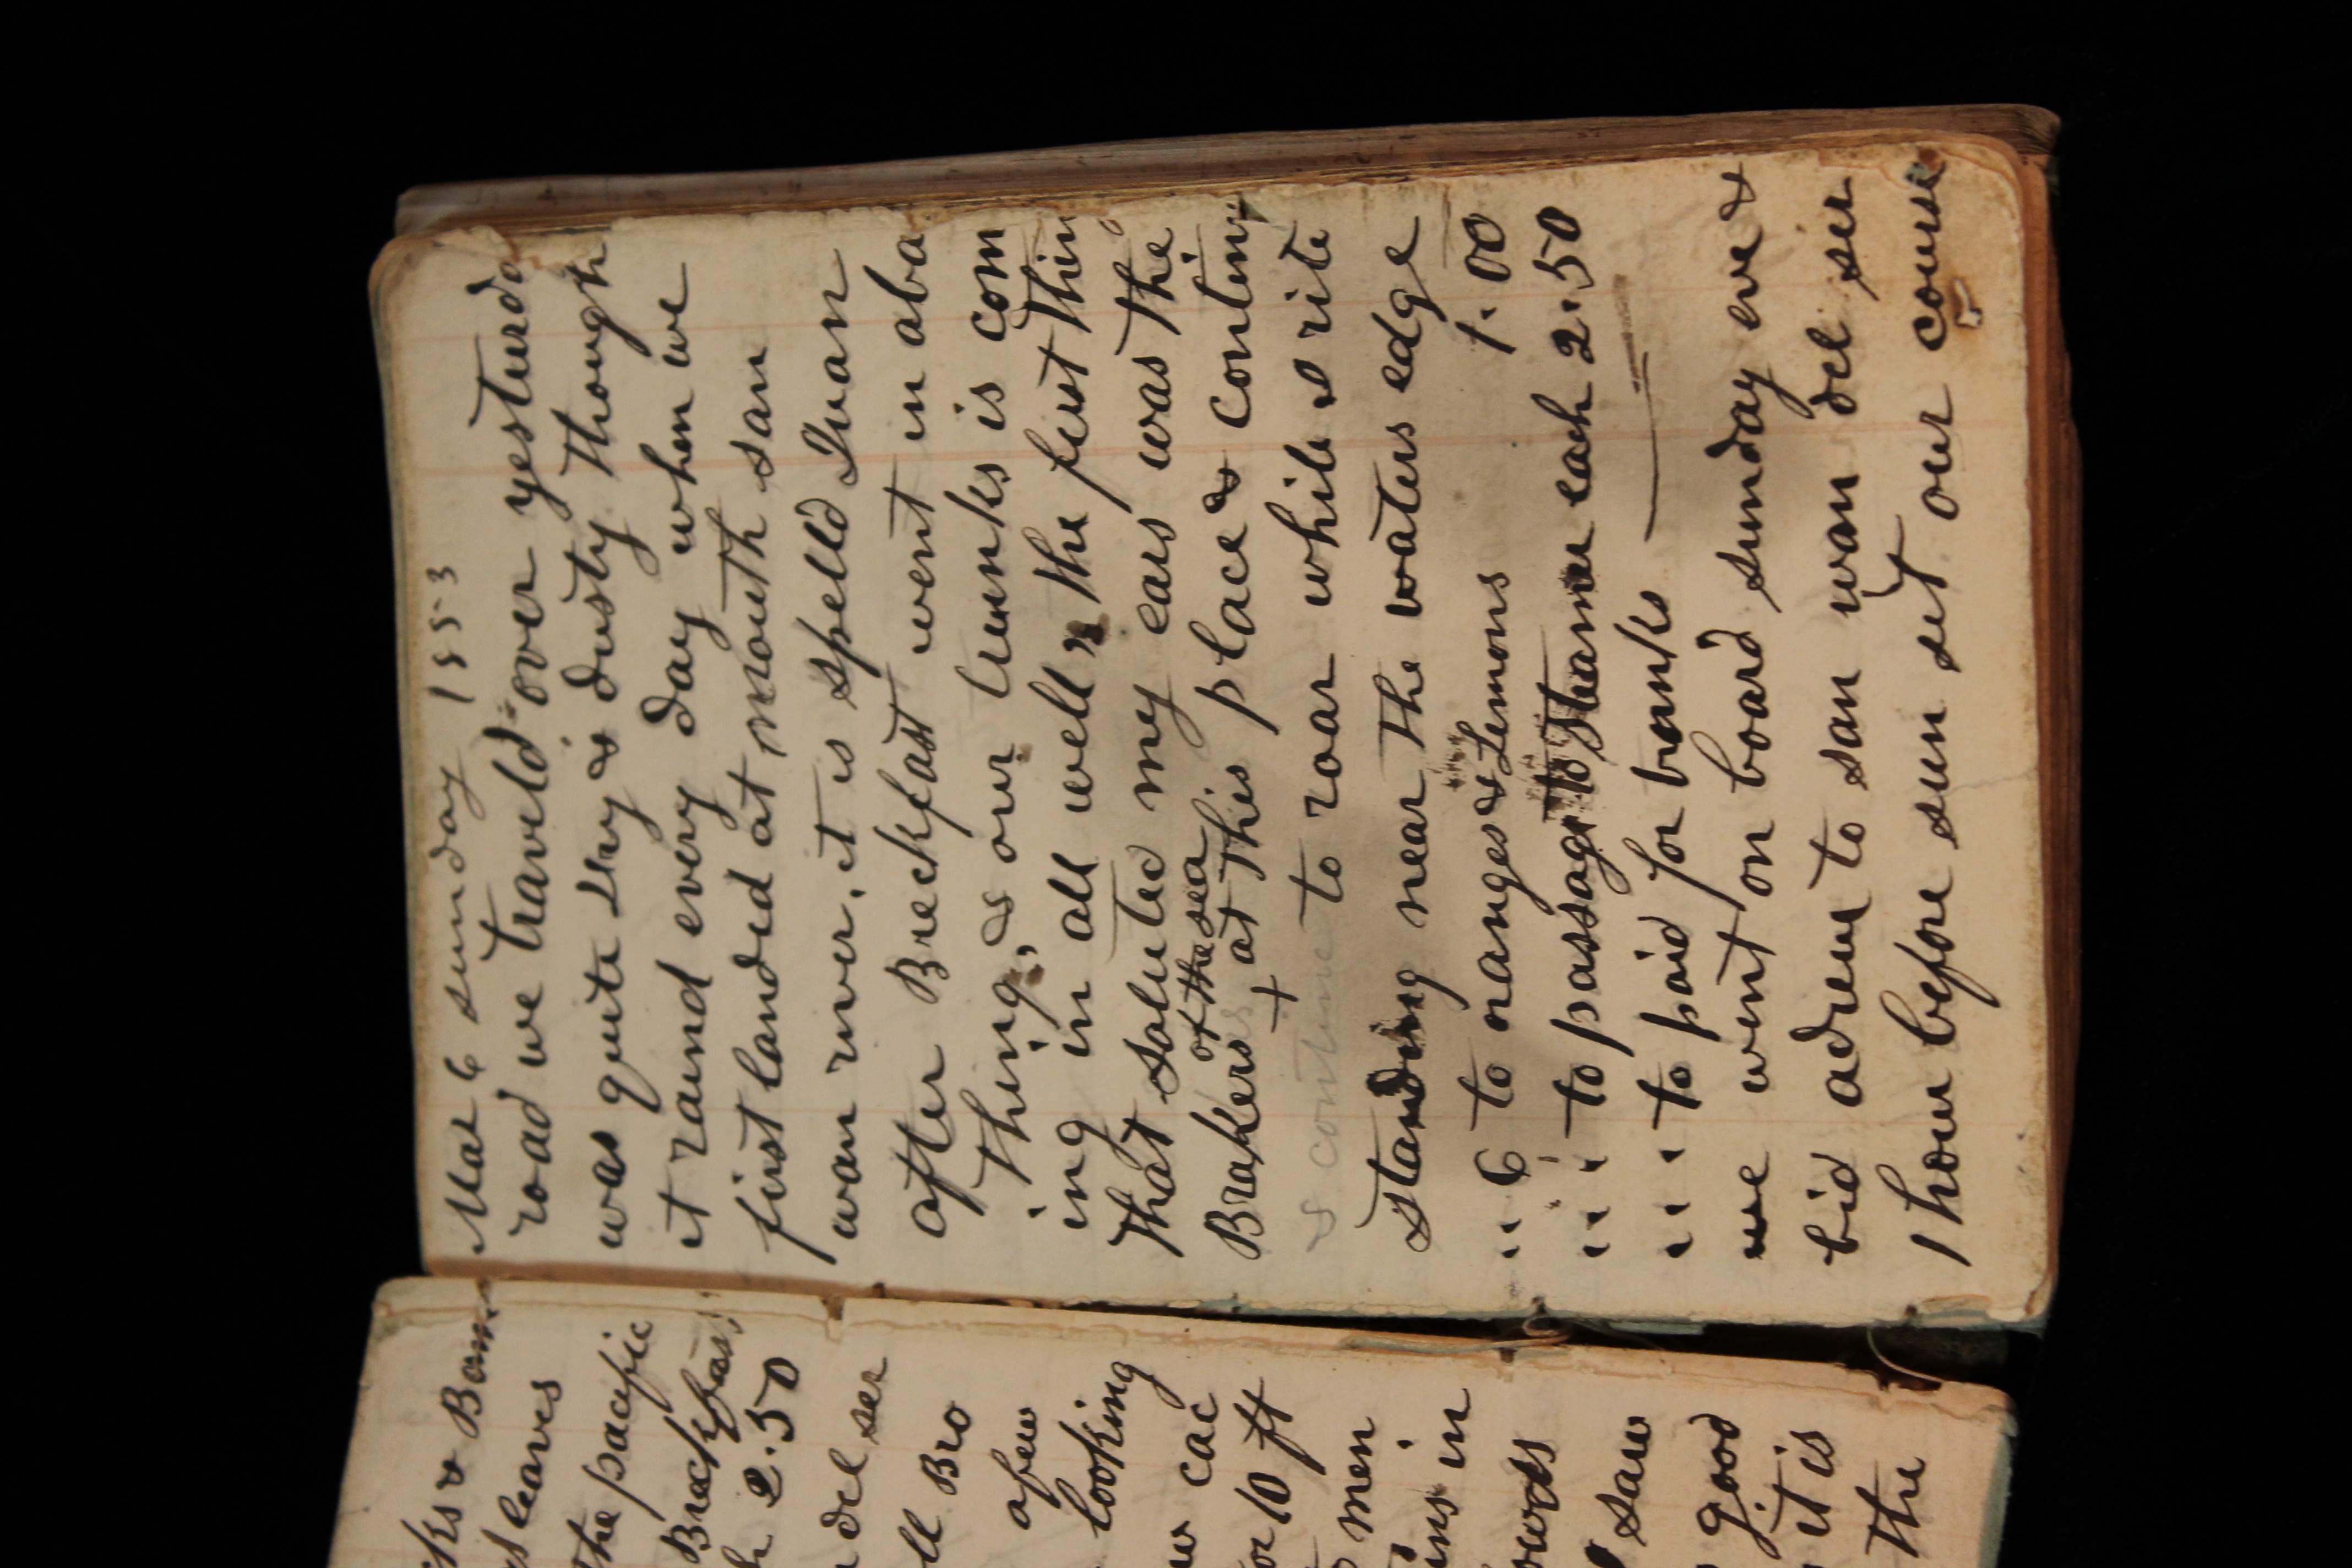 cks & Bam
leaves
the pacific
Breckfast
2.50
del ser
ll Bro
afew
looking
w cac
or 10 ft
men
ins in
saw
good
it is
the
Mar 6 sunday 1853
road we traveld over yesturda
was quite Dry & dusty though
it raind every day when we
first landed at mouth san
wan river, it is spelld Juan
after Breckfast went in aba
thing, & our trunks is com
ing in all well, the first thing
that saluted my ears was the
of the sea
Brakers + at this place & continu
& continue to roar while I rite
standing near the waters edge
" 6 to oranges & Lemons 1.00
" " to passage to Steamer each 2.50
" " to paid for trunks —
we went on board sunday eve &
bid adieue to san wan del sur
1 hour before sun set our course